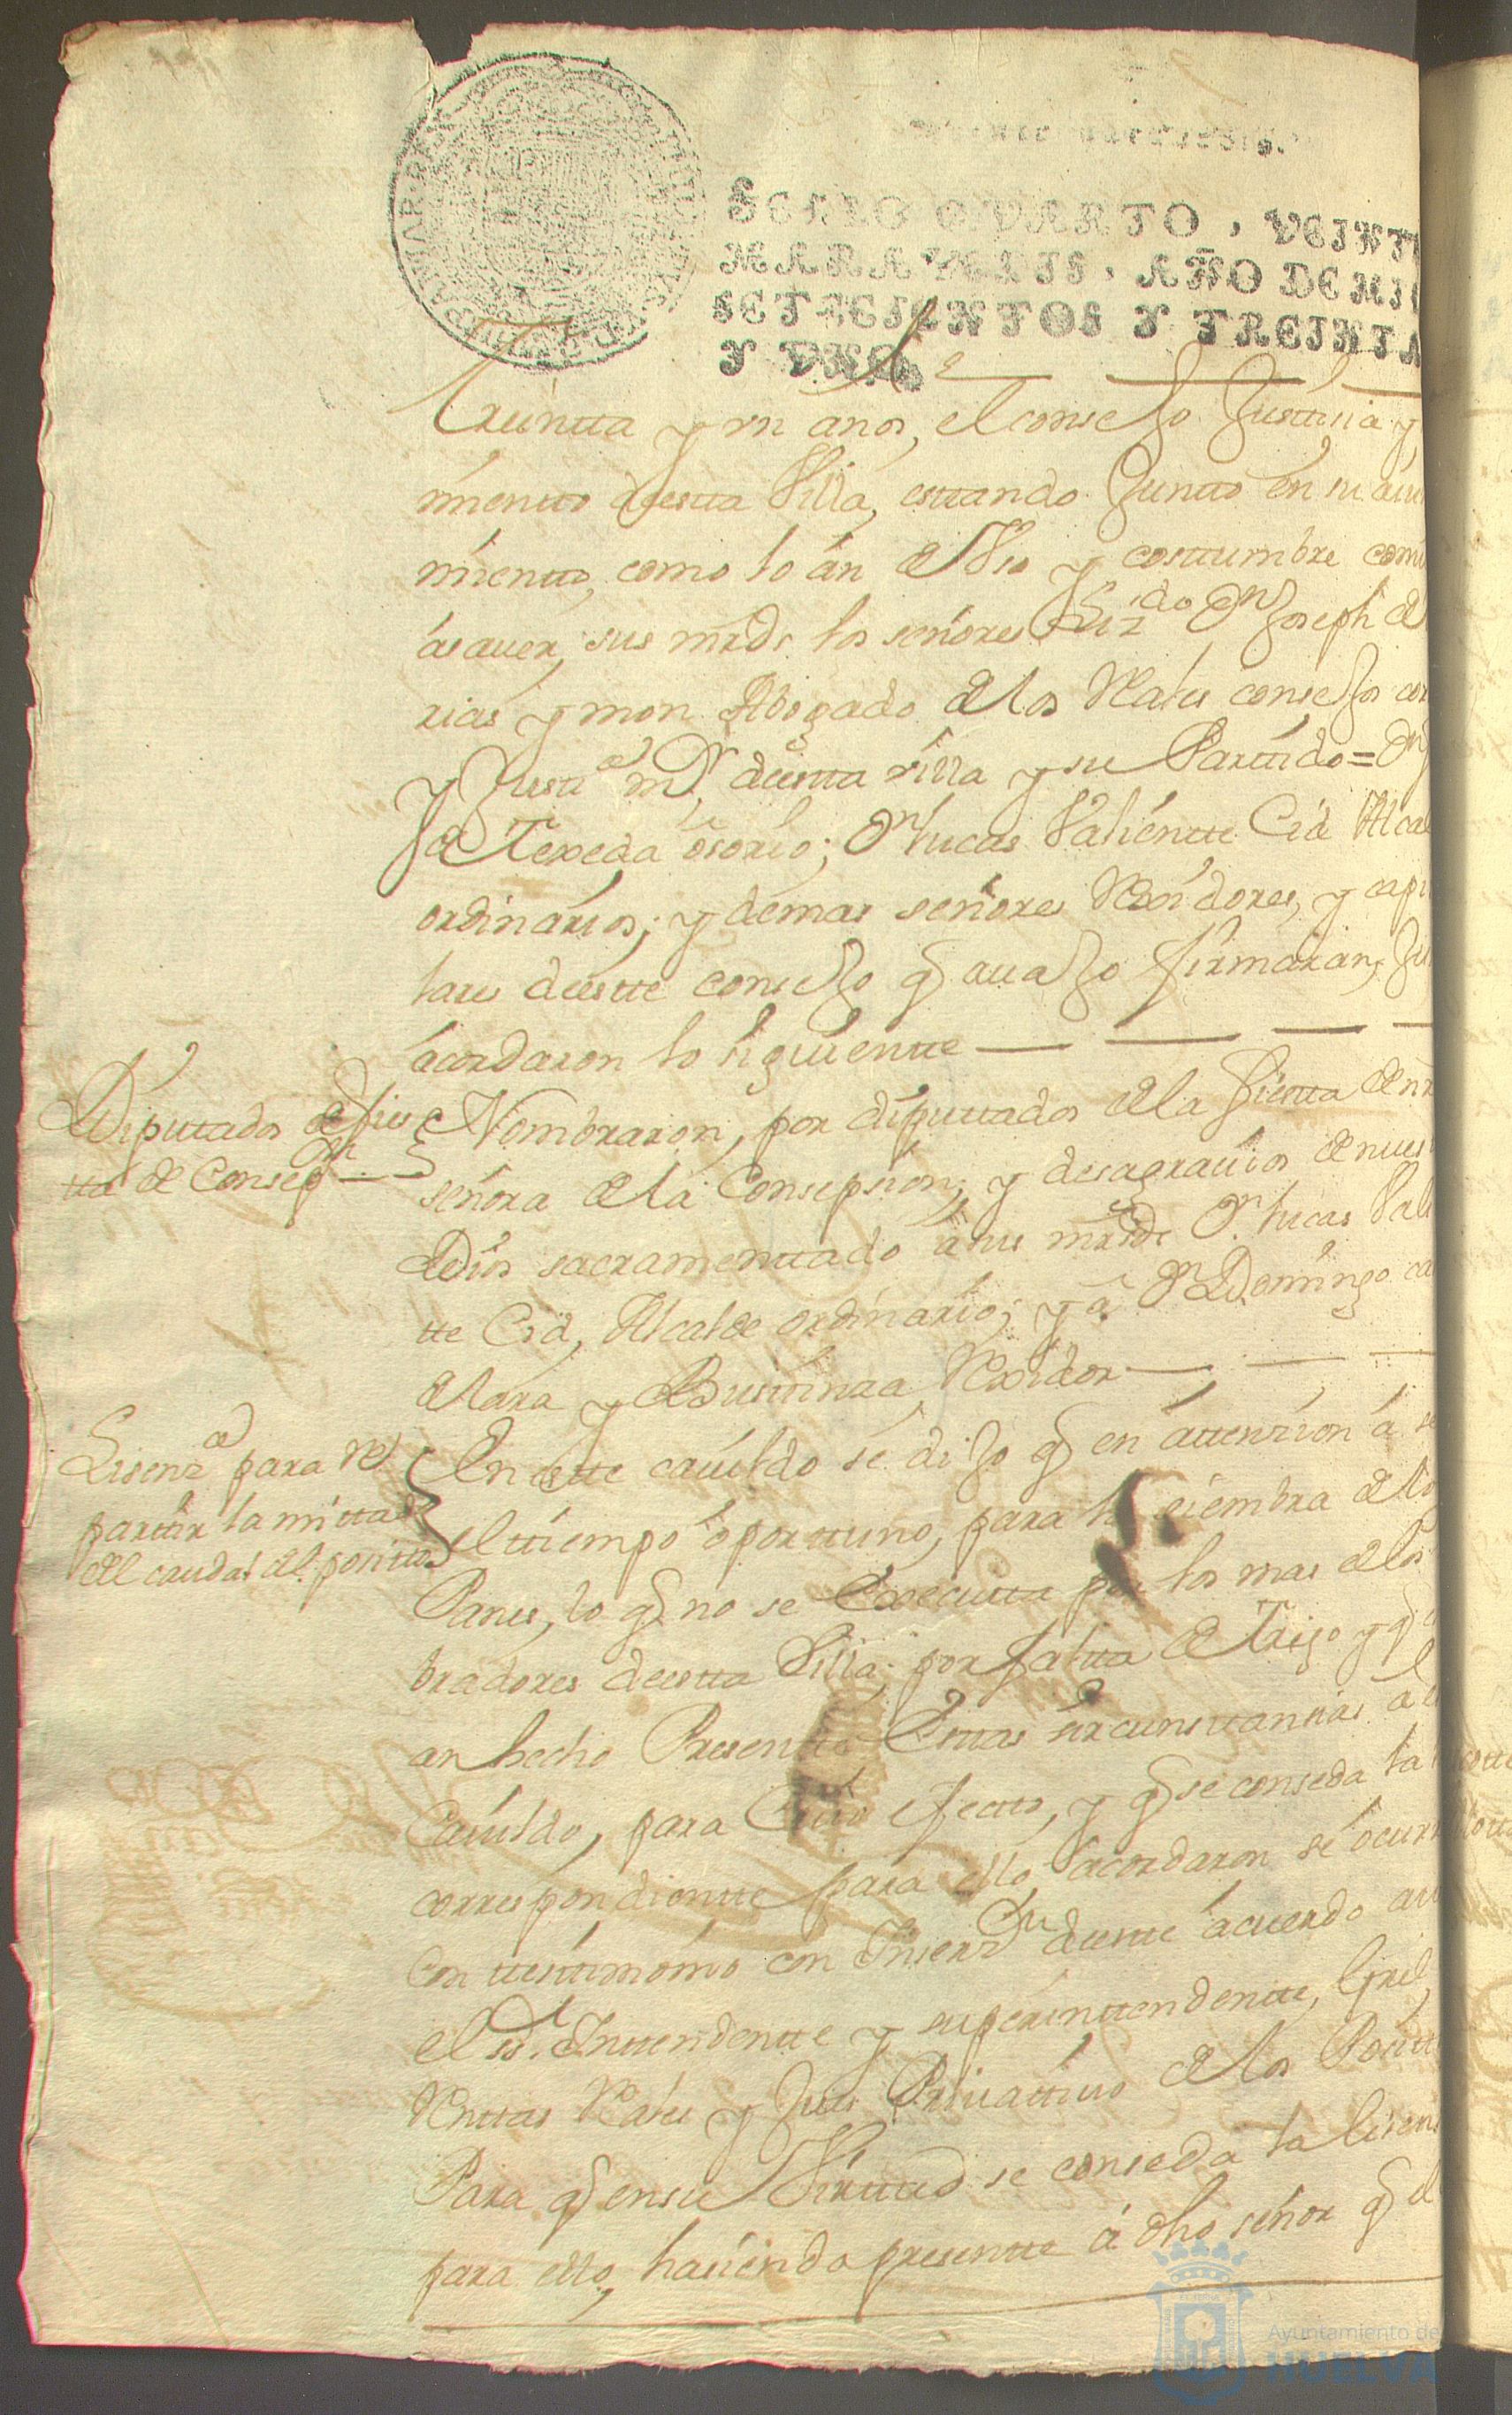 SELLO QVARTO, VEINT
MARAVEDIS, AÑO DE MI
SETECIENTOS Y TREINTA
Y VNO
treintta y un años, el consejo Justticia y
miento deestta Villa, esttando Juntto en su aiu
miento, como lo án de Vso y costtumbre com
ásauer, sus mrds. los señores Lizdo Dn Joseph de
rias y mon Abogado de los Rales consejos cor
y Justa mr. deestta villa y su Parttido = Dn
de Texeda osorio; Dn Lucas Valientte Cid Alcal
ordinarios; y demas señores Rexidores, y capi
lares deestte consejo q auajo firmaran, Ju
acordaron lo siguientte
Diputtados de fies
tta de Consepn
Nombraron, por diputtados de la fiestta de nr
señora de la Consepsion, y desagrauios de nues
Dios sacramenttado á sus mrds Dn Lucas Vali
tte Cid, Alcalde ordinario; y á Dn Domingo ca
de lara y Busttinza Rexidor
Lisenza para Re
parttir la mittad
del caudal del positto
En estte cauildo se dijo q en áttenzion á se
el ttiempo oporttuno, para la siembra de los
Panes, lo q no se Executta por los mas de los
bradores deestta Villa, por faltta de Trigo y q
an hecho Presentte Esttas sircunsttansias al
Cauildo, para Cuio efectto, y q se conseda la
correspondientte para ello, acordaron se ocurr
Con ttesttimonio con Inserzon deestte ácuerdo an
el sr. Inttendentte y superinttendentte, Gral,
Renttas Rales y Jues Priuattiuo de los Positt
Para q ensu Virttud se conseda la lisens
para ello, hasiendo presentte á dho señor q el
Ayuntamiento de
HUELVA